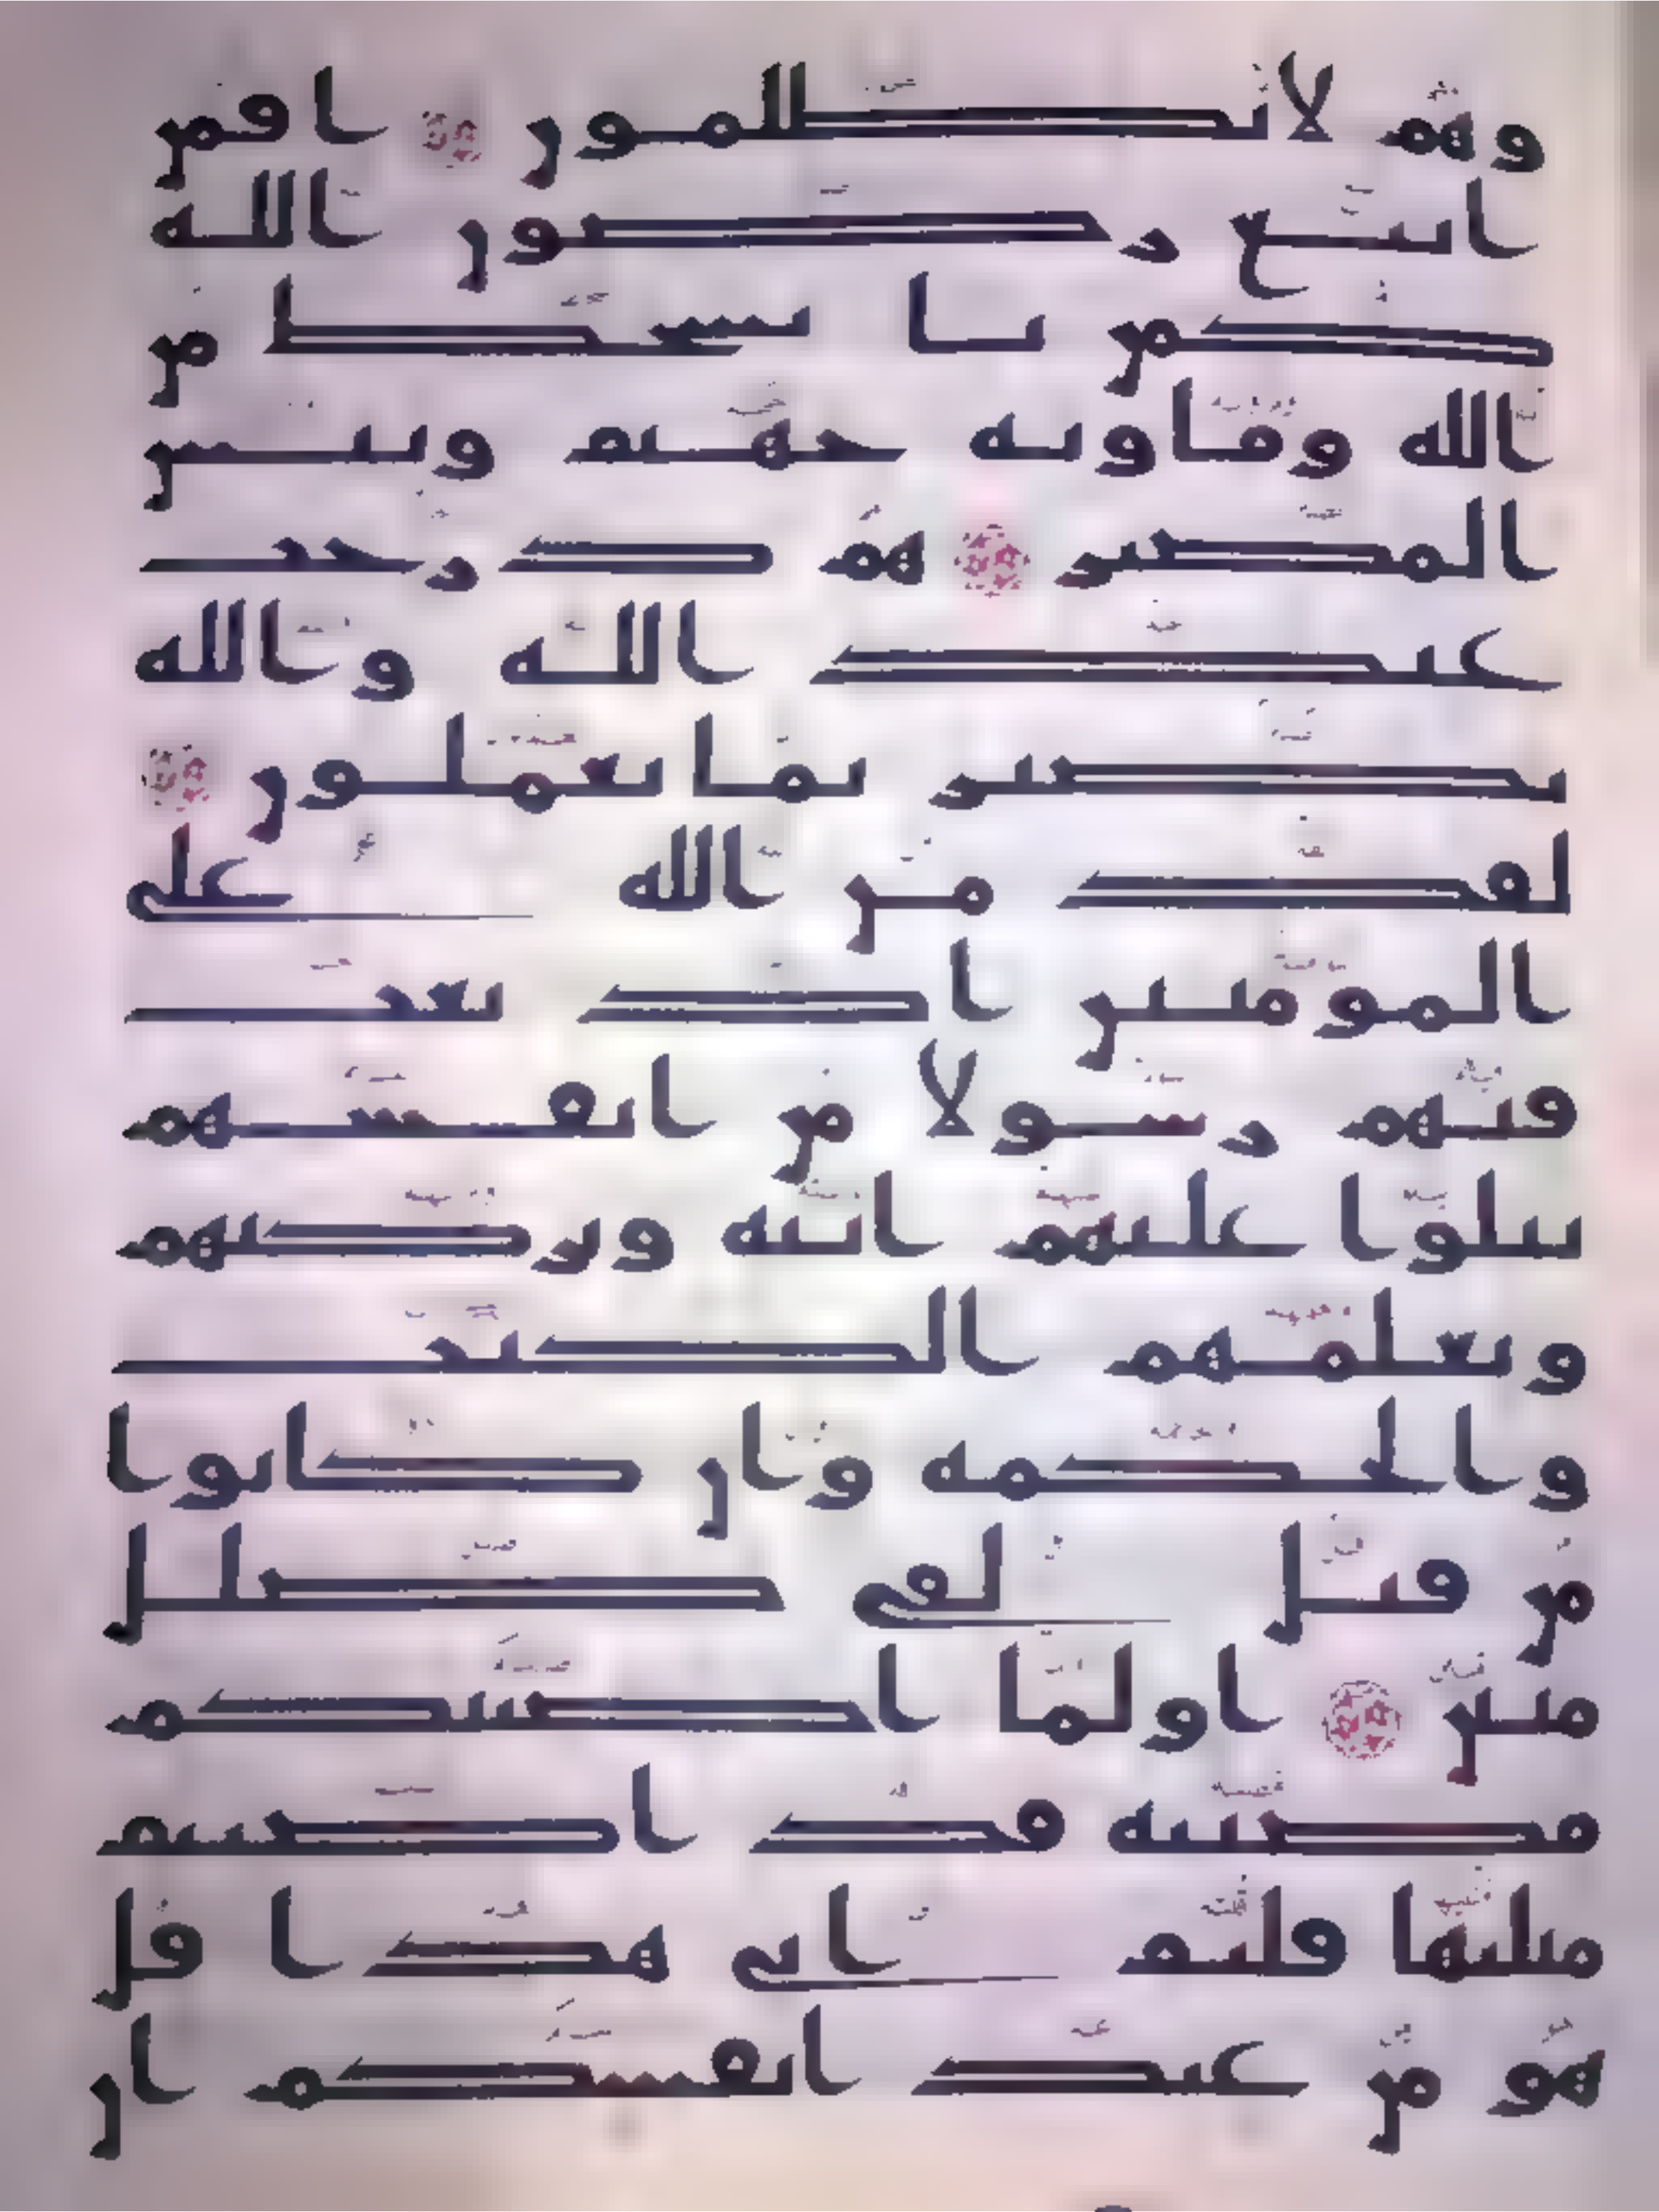 وهم لا يظلمون افمن
اتبع رضون الله
كمن با بسخط من
الله وماويه جهنم وبيس
المصير هم درجت
عند الله والله
بصير بما يعملون
لقد من الله على
المومنين اذ بعث
فيهم رسولا من انفسهم
يتلوا عليهم ايته ويزكيهم
ويعلمهم الكتب
والحكمه وان كانوا
من قبل لفى ضلل
مبين اولما اصبتكم
مصيبه قد اصبتم
مثليها قلتم انى هذا قل
هو من عند انفسكم ان